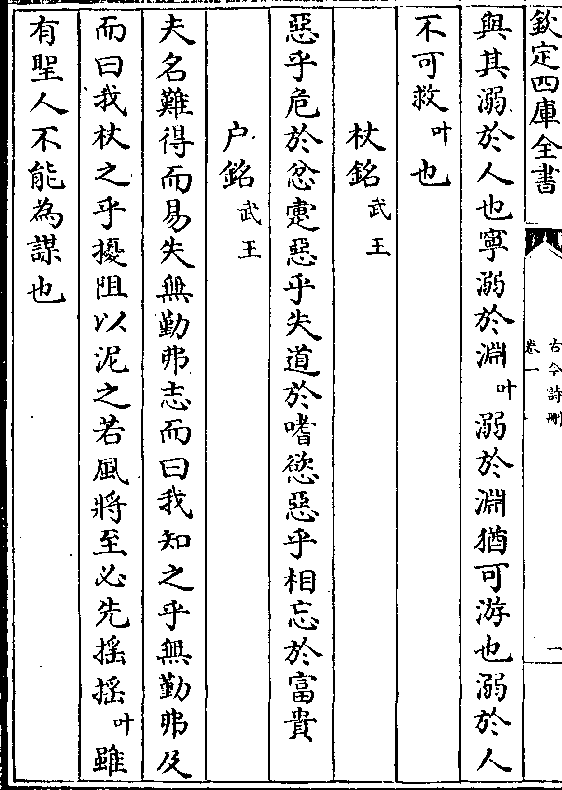 欽定四庫全書
古今詩刪
卷一
一
與其溺於人也寧溺於淵叶溺於淵猶可游也溺於人
不可救叶也
杖銘武王
惡乎危於忿疐惡乎失道於嗜慾惡乎相忘於富貴
户銘武王
夫名難得而易失無勤弗志而曰我知之乎無勤弗及
而曰我杖之乎擾阻以泥之若風將至必先揺揺叶雖
有聖人不能為謀也